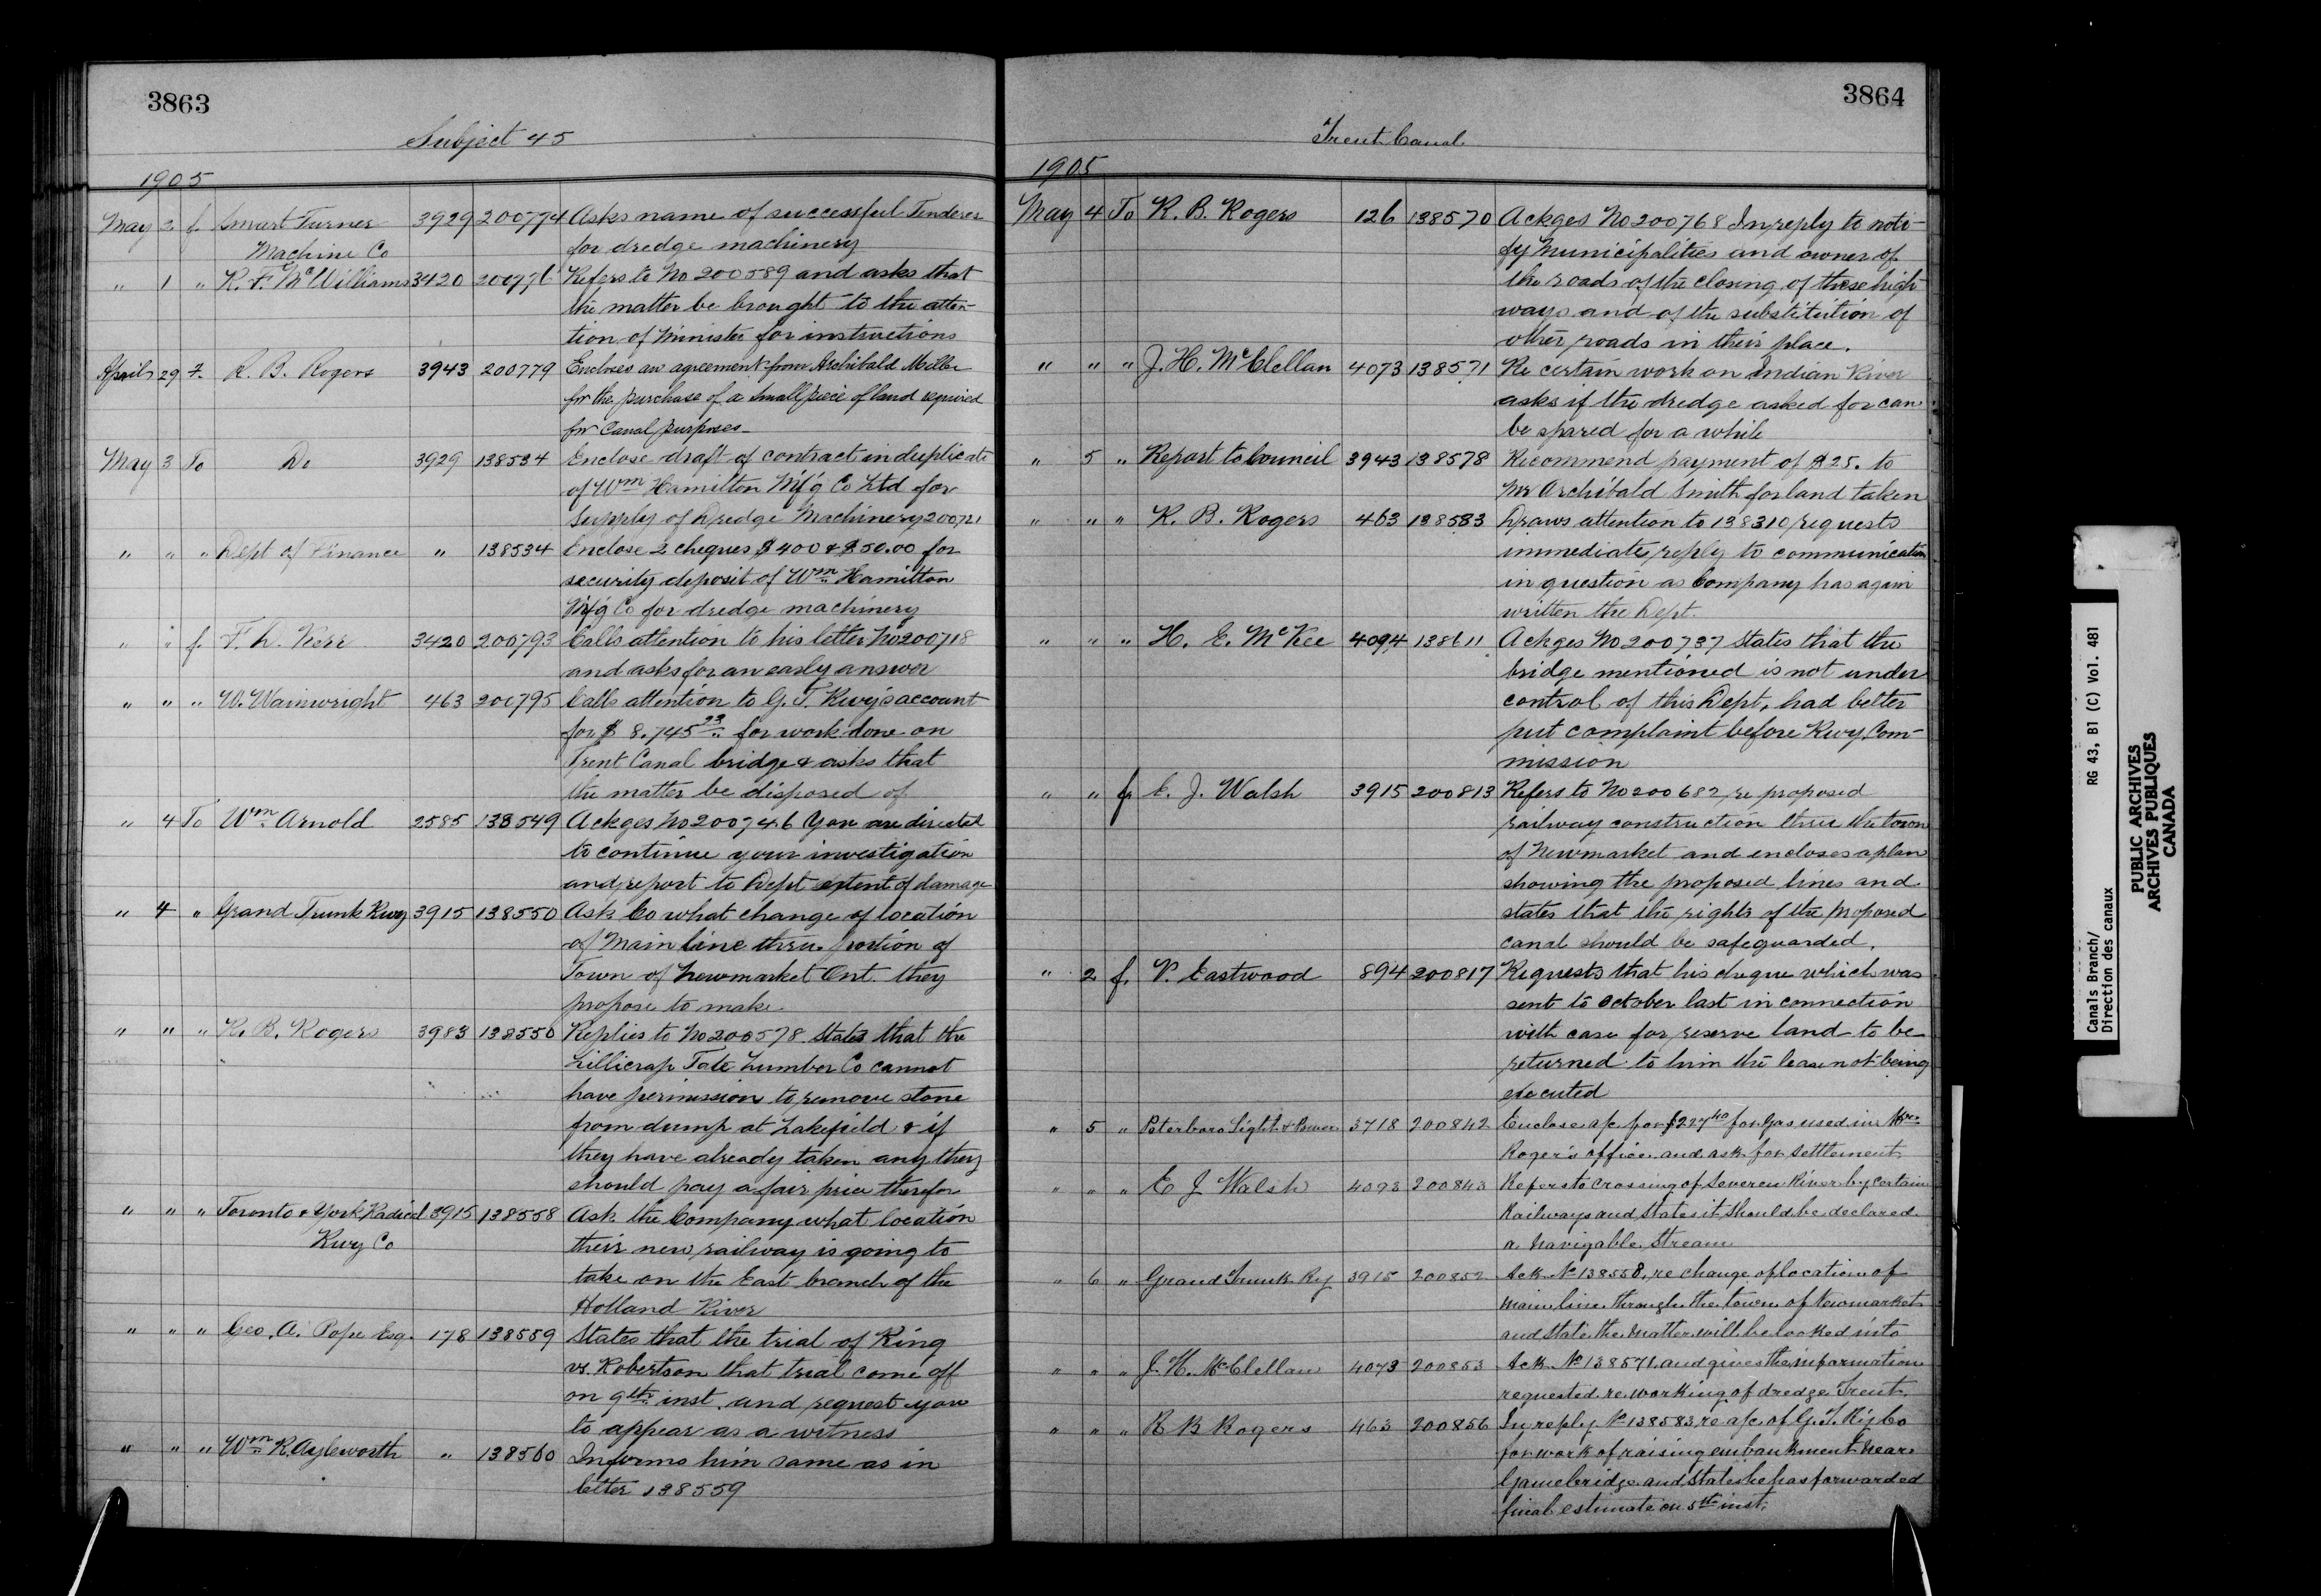 3863
Subject 45
1905
May 2 f Smart Turner 3929 200774 Asks name of successful Tenderer
Machine Co for dredge machinery
" 1 " R. F. McWilliams 3420 200776 Refers to No 200589 and asks that
the matter be brought to the atten-
tion of Minister for instructions
April 29 f. R. B. Rogers 3943 200779 Encloses an agreement from Archibald
for the purchase of a small piece of land required
for Canal purposes
May 3 To Do 3929 138534 Enclose draft of contract in duplicate
of Wm Hamilton M'f'g Co Ltd for
supply of Dredge Machinery 200721
" " " Dept of Finance " 138534 Enclose 2 cheques $400 & $50.00 for
security deposit of Wm Hamilton
M'f'g Co for dredge machinery
" " f. F. D. Kerr 3420 200793 Calls attention to his letter No 200718
and asks for an early answer
" " " W. Wainwright 463 200795 Calls attention to G. T. Rwy's account
for $ 8.745 23 for work done on
Trent Canal bridge & asks that
the matter be disposed of
" 4 To Wm Arnold 2585 138549 Ackges No 200746 You are directed
to continue your investigation
and report to Dept extent of damage
" 4 " Grand Trunk Rwy 3915 138550 Ask Co what change of location
of Main line thru. portion of
Town of Newmarket Ont. they
propose to make
" " " R. B. Rogers 3983 138550 Replies to No 200578. States that the
Lillicrap Tate Lumber Co cannot
have permission to remove stone
from dump at Lakefield & if
they have already taken any they
should pay a fair price therefor
" " " Toronto & York Radial 3915 138558 Ask the Company what location
Rwy Co their new railway is going to
take on the East branch of the
Holland River
" " " Geo. A. Pope Esq. 178 138559 States that the trial of King
vs. Robertson that trial come off
on 9th inst. and request you
to appear as a witness
" " " Wm R. Aylsworth " 138560 Informs him same as in
letter 138559
3864
Trent Canal
1905
May 4 To R. B. Rogers 126 138570 Ackges No 200768 In reply to noti-
fy Municipalities and owner of
the roads of the closing of these high
ways and of the substitution of
other roads in their place.
" " " J. H. McClellan 4073 138571 Re certain work on Indian River
asks if the dredge asked for can
be spared for a while
" 5 " Report to Council 3943 138578 Recommend payment of $25. to
Mr Archibald Smith for land taken
" " " R. B. Rogers 463 138583 Draws attention to 138310 requests
immediate reply to communication
in question as Company has again
written the Dept.
" " " H. E. McKee 4094 138611 Ackges No 200737 States that the
bridge mentioned is not under
control of this Dept, had better
put complaint before Rwy. Com-
mission
" " f E. J. Walsh 3915 200813 Refers to No 200682, re proposed
railway construction thru the town
of Newmarket and encloses a plan
showing the proposed lines and
states that the rights of the proposed
canal should be safeguarded.
" 2 f. P. Eastwood 894 200817 Requests that his cheque which was
sent to October last in connection
with case for reserve land to be
returned to him the lease not being
executed
" 5 " Peterboro Light & Power 3718 200842 Enclose a/c for $227 40 for gas used in
Roger's office and ask for settlement
" " " E J Walsh 4093 200843 Refers to crossing of Severn River by certain
Railways and states it should be declared
a navigable stream
" 6 " Grand Trunk Ry 3915 200852 Ack No 138558, re change of location of
main line through the town of Newmarket
and state the matter will be looked into
" " " J. H. McClellan 4073 200853 Ack No 138571 and gives the information
requested re working of dredge Trent.
" " " R B Rogers 463 200856 In reply No 138583 re a/c of G. T. Ry Co
for work of raising embankment near
Gamebridge and states he has forwarded
final estimate on 5th inst.
Canals Branch/ RG 43, B1 (C) Vol. 481
Direction des canaux
PUBLIC ARCHIVES
ARCHIVES PUBLIQUES
CANADA